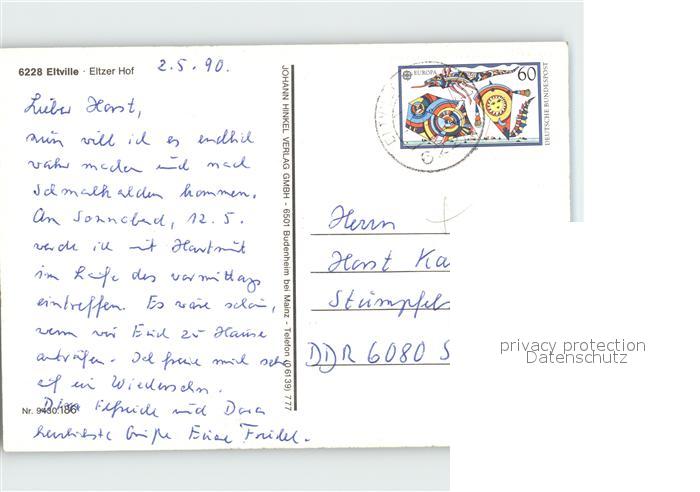 6228 Eltville · Eltzer Hof
2.5.90.
Lieber Horst,
nun will ich es endlich
wahr machen und nach
Schmalkalden kommen.
Am Sonnabend, 12.5.
werde ich mit Hartmut
im Laufe des vormittags
eintreffen. Es wäre schön,
wenn wir Euch zu Hause
anträfen. Ich freue mich sehr
auf ein Wiedersehn.
Elfriede und Dora
herzlichste Grüße Eure Friedel.
Nr. 9430.186
JOHANN HINKEL VERLAG GMBH - 6501 Budenheim bei Mainz - Telefon (0 6139) 777
EUROPA
60
DEUTSCHE BUNDESPOST
Herrn
Horst Ka
Stümpfel
DDR 6080 S
privacy protection
Datenschutz